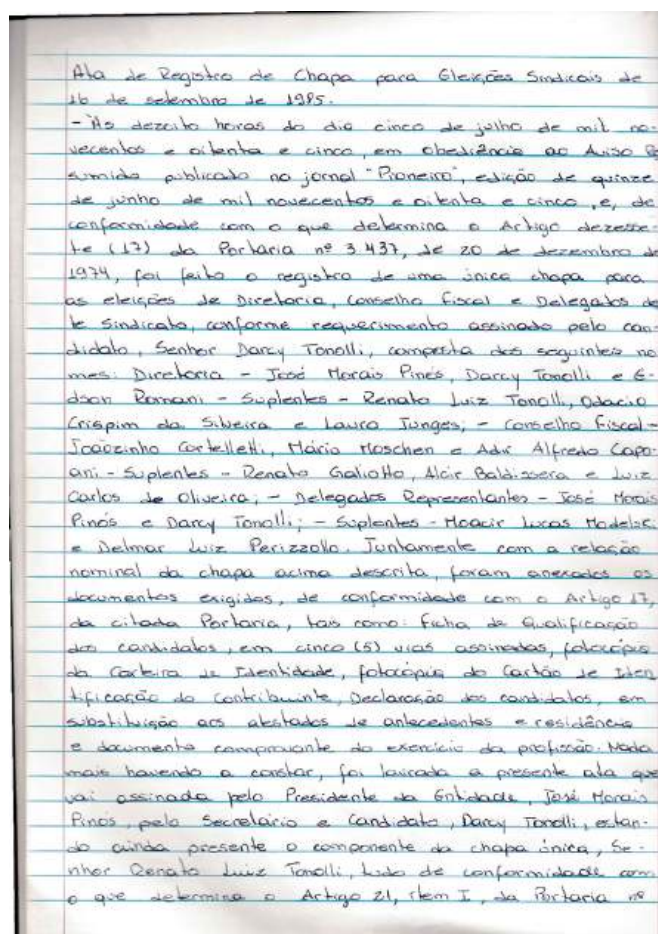 Ata de Registro de Chapa para Eleições Sindicais de
16 de setembro de 1985.
- Às dezoito horas do dia cinco de julho de mil no-
vecentos e oitenta e cinco, em obediência ao Aviso Re
sumido publicado no jornal "Pioneiro", edição de quinze
de junho de mil novecentos e oitenta e cinco, e, de
conformidade com o que determina o Artigo dezesse-
te (17) da Portaria nº 3.437, de 20 de dezembro de
1974, foi feito o registro de uma única chapa para
as eleições de Diretoria, Conselho Fiscal e Delegados des
te Sindicato, conforme requerimento assinado pelo can
didato, Senhor Darcy Tonolli, composta dos seguintes no
mes: Diretoria - José Morais Pinós, Darcy Tonolli e E-
dson Romani - Suplentes - Renato Luiz Tonolli, Odacio
Crispim da Silveira e Lauro Junges; - Conselho Fiscal -
Joãozinho Cortelletti, Mário Moschen e Adir Alfredo Capo-
ani - Suplentes - Renato Galiotto, Alcir Baldissera e Luiz
Carlos de Oliveira; - Delegados Representantes - José Morais
Pinós e Darcy Tonolli; - Suplentes - Moacir Lucas Modelski
e Delmar Luiz Perizzollo. Juntamente com a relação
nominal da chapa acima descrita, foram anexados os
documentos exigidos, de conformidade com o Artigo 17,
da citada Portaria, tais como: ficha de Qualificação
dos candidatos, em cinco (5) vias assinadas, fotocópia
da Carteira de Identidade, fotocópia do Cartão de Iden
tificação do Contribuinte, Declaração dos candidatos, em
substituição aos atestados de antecedentes e residência
e documento comprovante do exercício da profissão. Nada
mais havendo a constar, foi lavrada a presente ata que
vai assinada pelo Presidente da Entidade, José Morais
Pinós, pelo Secretário e Candidato, Darcy Tonolli, estan-
do ainda presente o componente da chapa única, Se-
nhor Renato Luiz Tonolli, tudo de conformidade com
o que determina o Artigo 21, item I, da Portaria nº